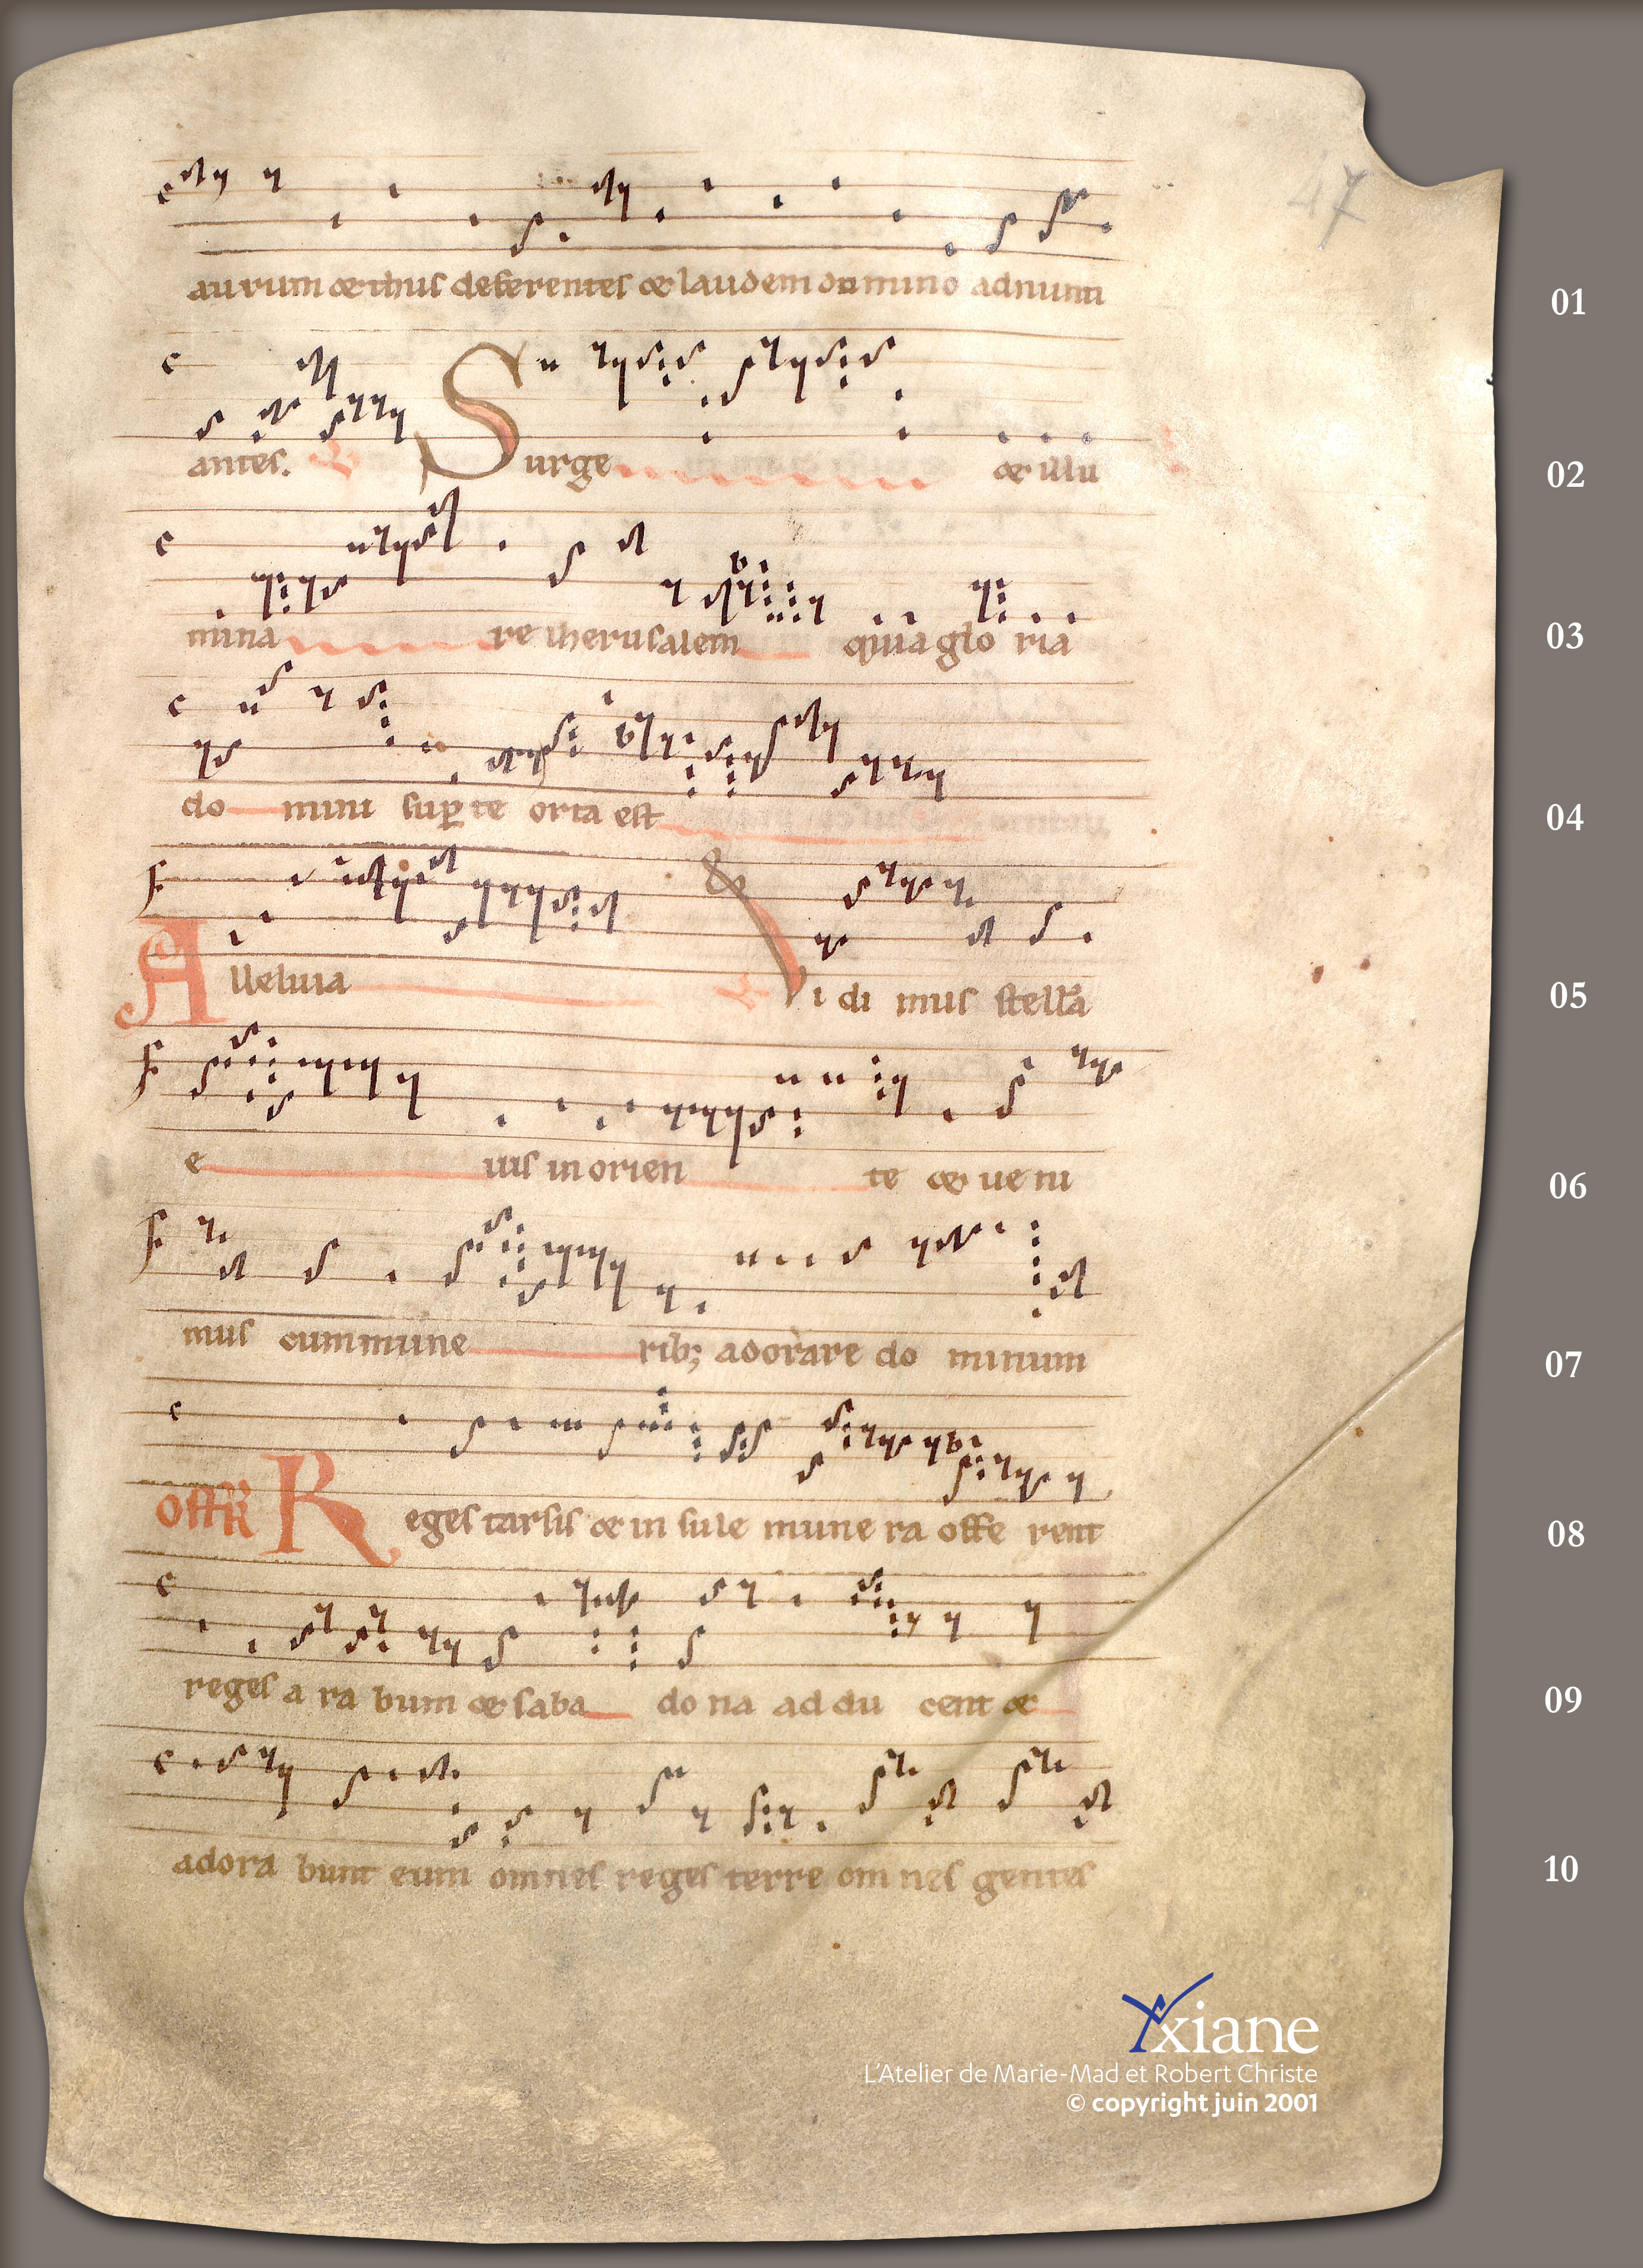 47
aurum & thus deferentes & laudem domino adnunti
01
antes. Surge & illu
02
mina re iherusalem quia gloria
03
do mini sup te orta est
04
Alleluia Vi di mus stellā
05
e ius in orien te & ue ni
06
mus cum mune rib; adorare do minum
07
Offr̄ Reges tarsis & in sule mune ra offe rent
08
reges a ra bum & saba do na ad du cent &
09
adora bunt eum omnes reges terre om nes gentes
10
Yxiane
L'Atelier de Marie-Mad et Robert Christe
© copyright juin 2001